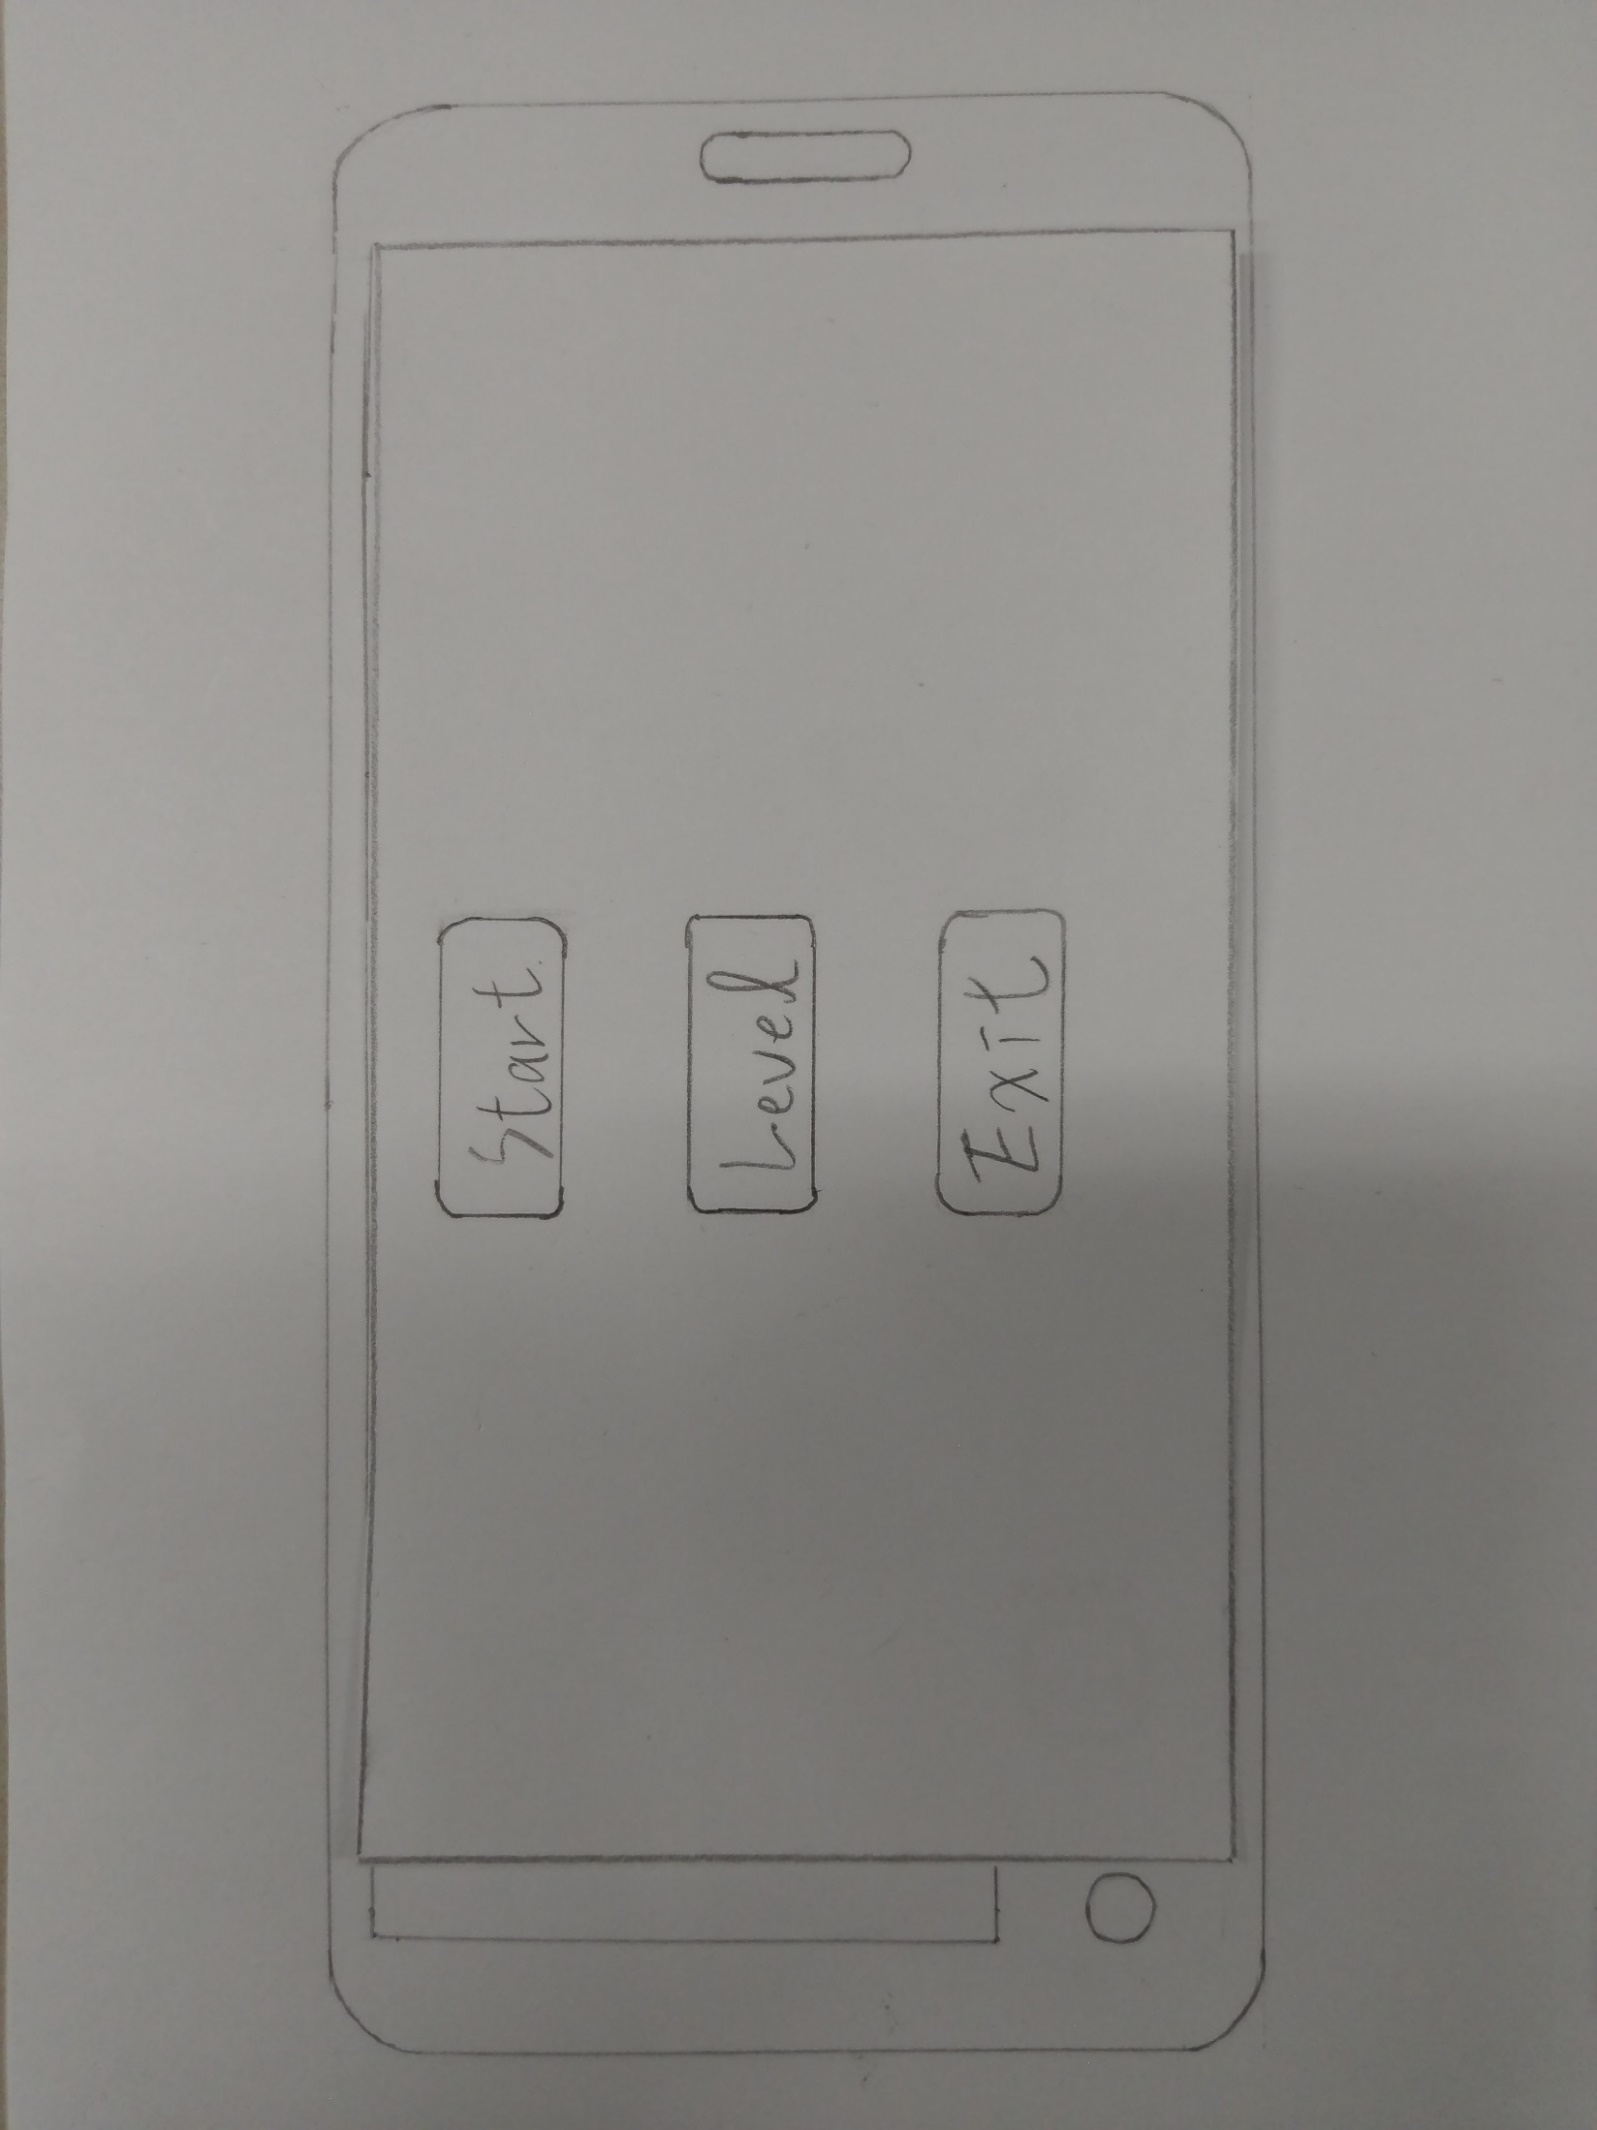 Start
Level
Exit